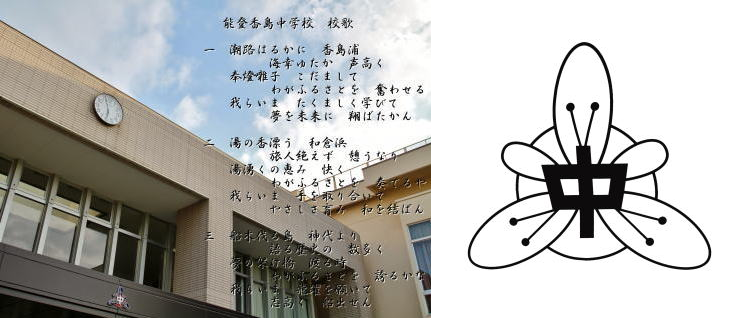 能登香島中学校　校歌
一　潮路はるかに　香島浦
海幸ゆたか　声高く
奉燈雅子　こだまして
わがふるさとを　奮わせる
我らいま　たくましく学びて
夢を未来に　翔ばたかん
二　湯の香漂う　和倉浜
旅人絶えず　憩うなり
湯湧くの恵み　快く
わがふるさとを　奏でるや
我らいま　手を取り合いて
やさしさ育み　和を結ばん
三　船木伐る島　神代より
語る歴史の　数多く
夢の架け橋　渡る時
わがふるさとを　誇るかな
我らいま　飛躍を願いて
志高く　船出せん
中